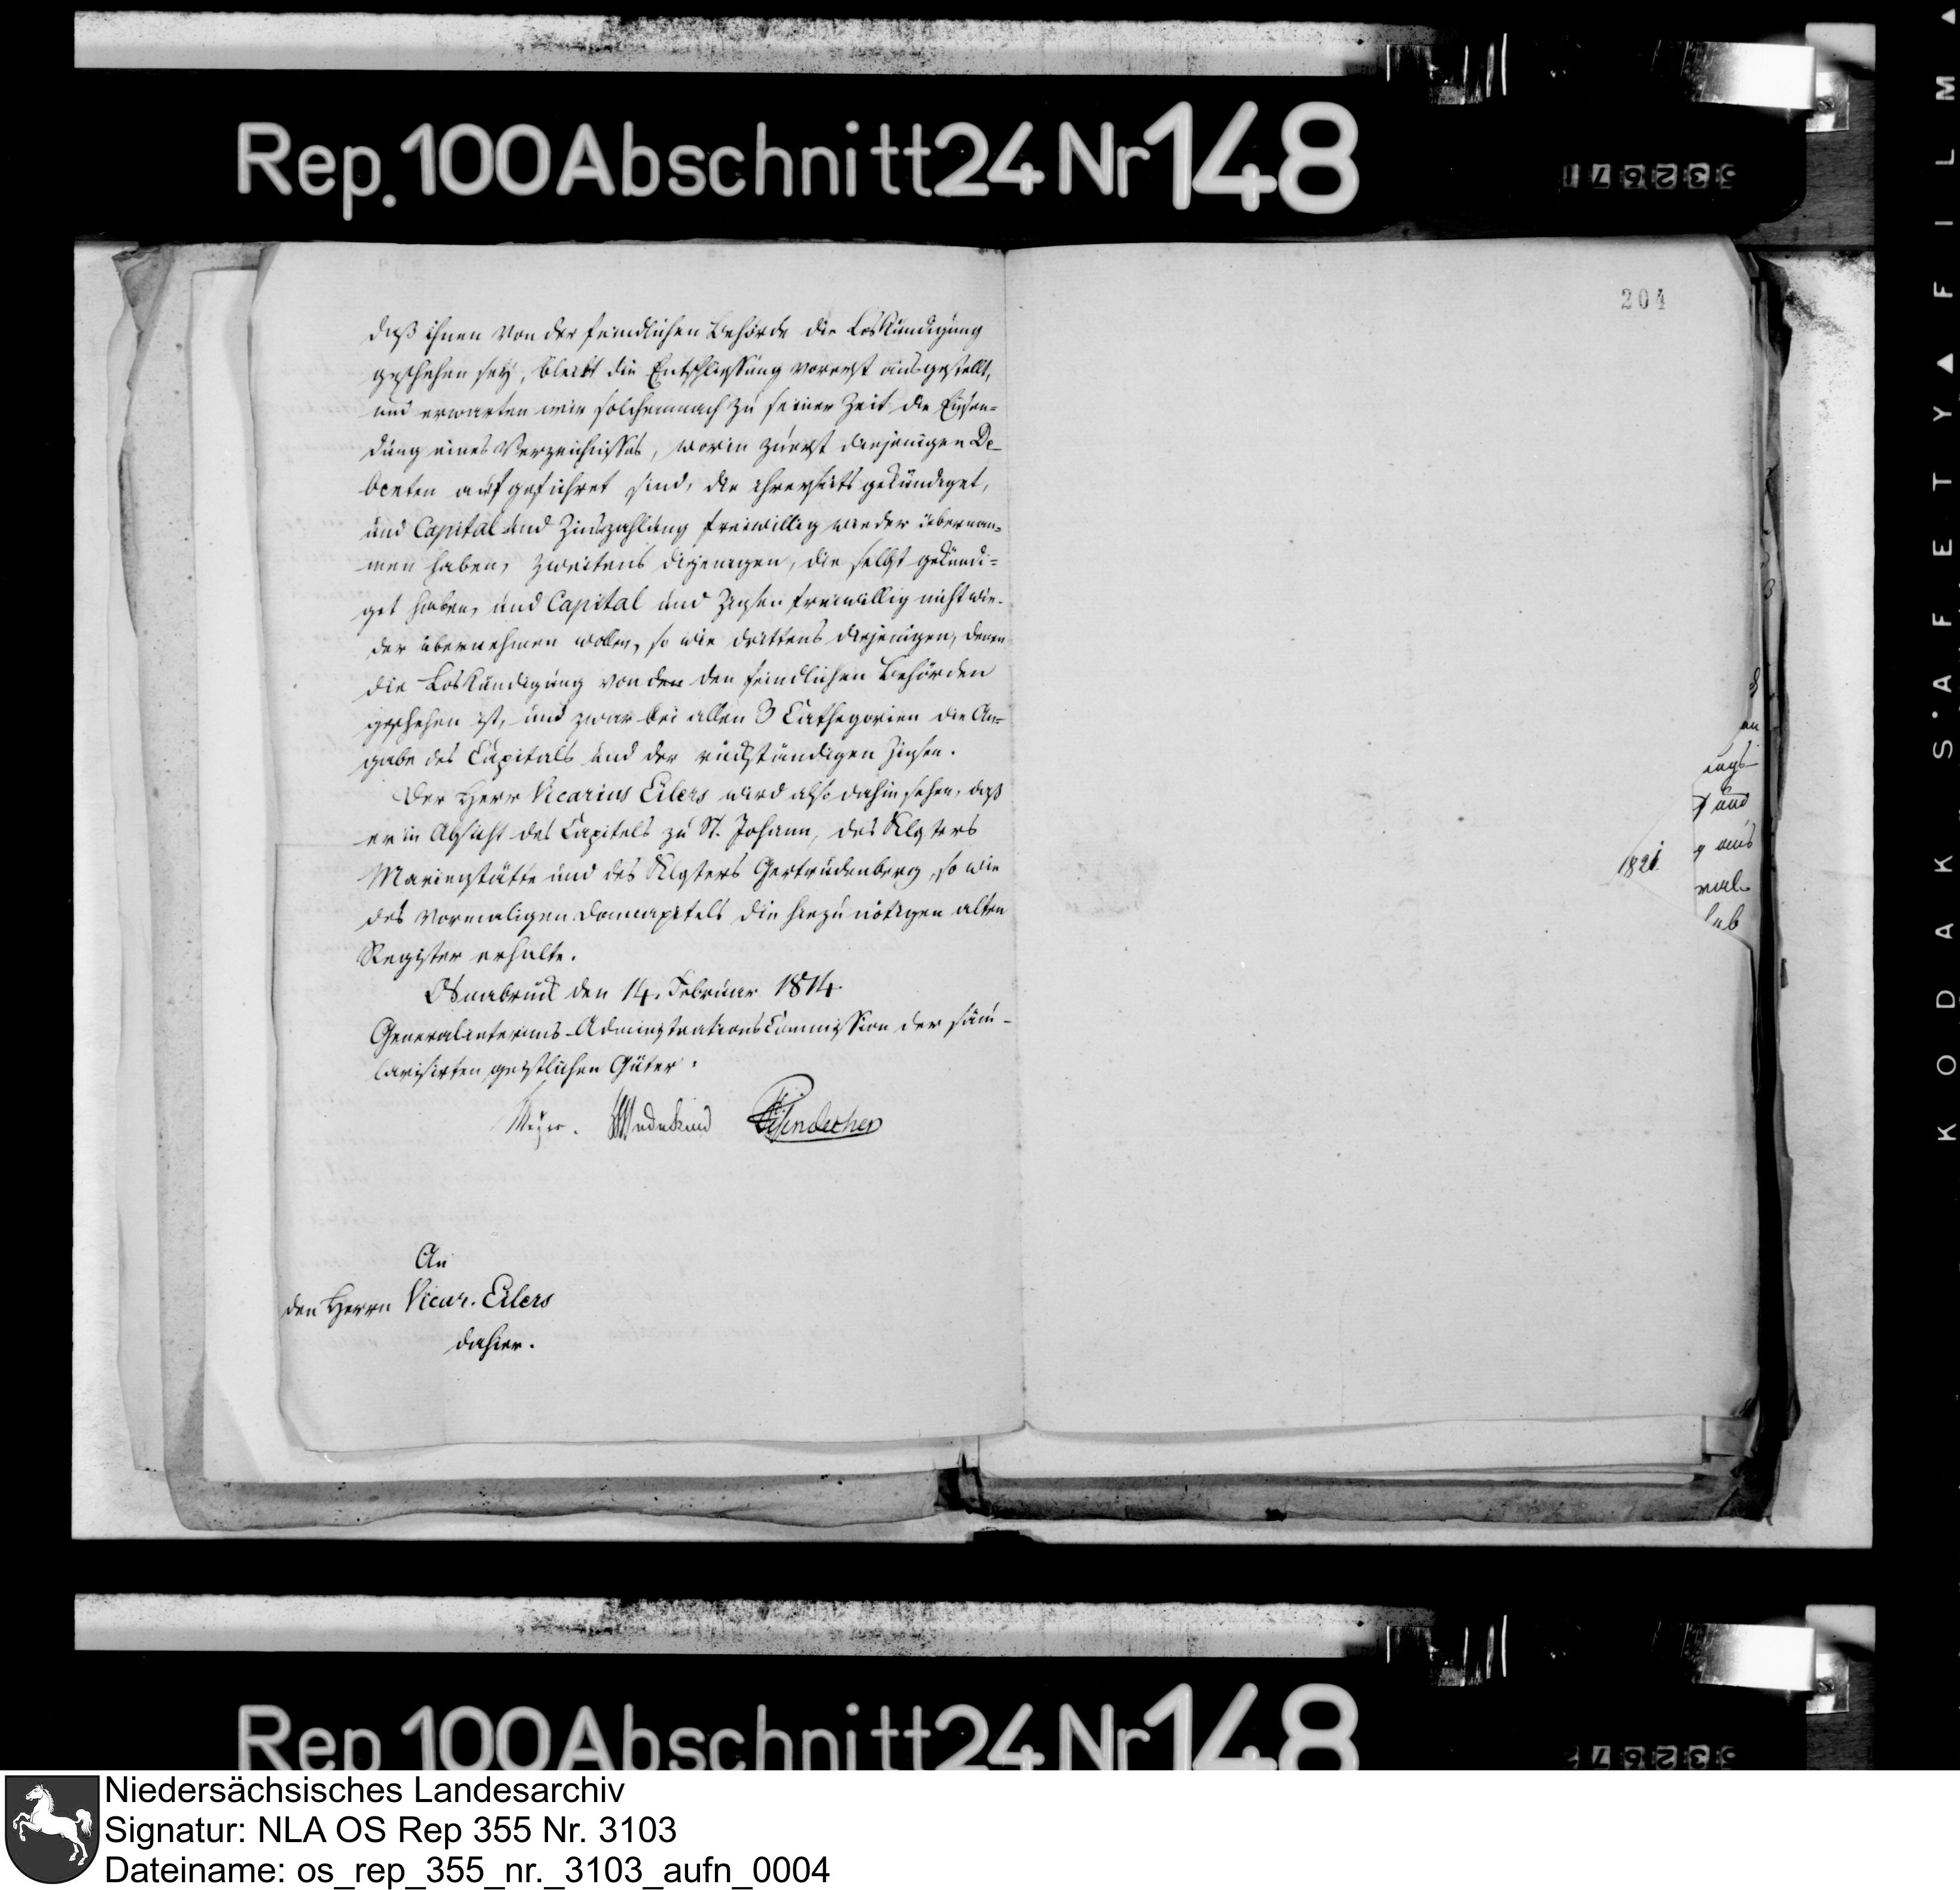 Rep. 100 Abschnitt 24 Nr 148
204
daß ihnen von der feindlichen Behörde die Loskündigung
geschehen sey, bleibt die Entschliessung vorerst ausgestellt,
und erwarten wir solchemnach zu seiner Zeit die Einsen-
dung eines Verzeichnisses, worin zuerst diejenigen De-
benten aufgeführet sind, die ihrerseits gekündiget,
und Capital und Zinszahlung freiwillig wieder übernom-
men haben, zweitens diejenigen, die selbst gekündi-
get haben, und Capital und Zinsen freiwillig nicht wie-
der übernehmen wollen, so wie drittens diejenigen, denen
die Loskündigung von den den feindlichen Behörden
geschehen ist, und zwar bei allen 3 Cathegorien die An-
gabe des Capitals und der rückständigen Zinsen.
Der Herr Vicarius Eilers wird also dahin sehen, daß
er in Absicht des Capitels zu St. Johann, des Klosters
Marienstätte und des Klosters Gertrudenberg, so wie
des vormaligen Domcapitels die hiezu nötigen alten
Register erhalte.
Osnabrück den 14. Februar 1814.
Generalinterims-Administrations Commission der säcu-
larisirten geistlichen Güter.
Meyer. Wedekind
An
den Herrn Vicar. Eilers
dahier.
182
und
aus
KODAK SAFETY FILM
Rep 100 Abschnitt 24 Nr 148
Niedersächsisches Landesarchiv
Signatur: NLA OS Rep 355 Nr. 3103
Dateiname: os_rep_355_nr._3103_aufn_0004